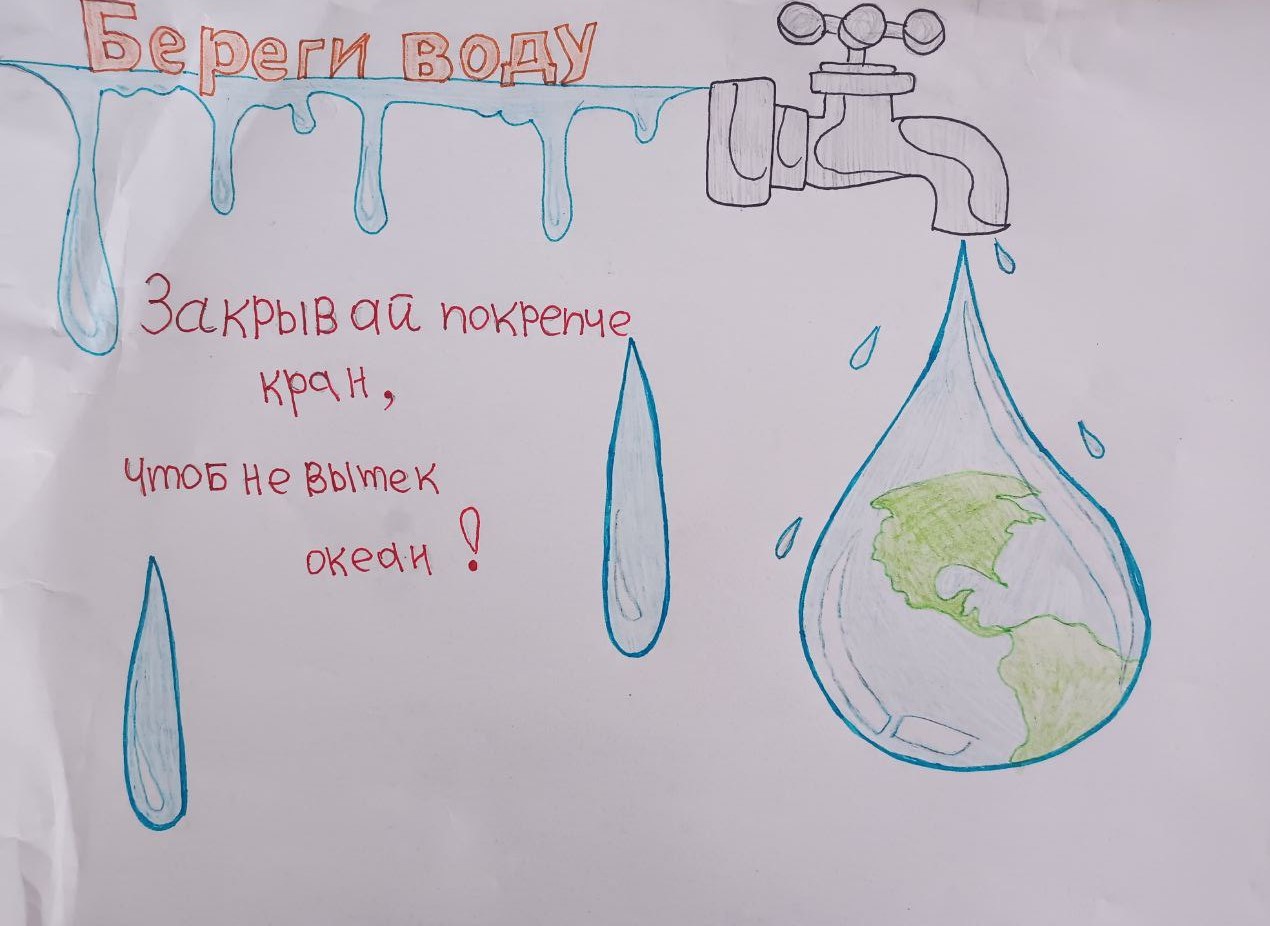 Береги воду
Закрывай покрепче
кран,
чтоб не вытек
океан!